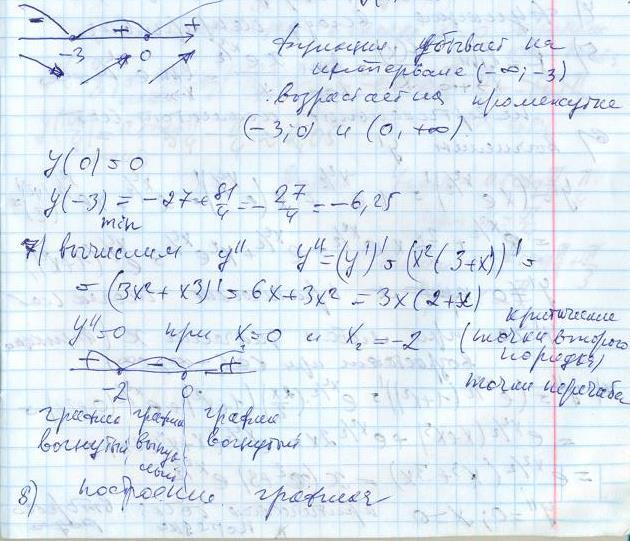 - + +
-3 0
функция убывает на
интервале (-∞; -3)
возрастает на промежутке
(-3; 0) и (0, +∞)
y(0) = 0
y(-3) = -27 + 81/4 = -27/4 = -6,25
min
7) вычислим y'' y'' = (y')' = (x²(3+x))' =
= (3x² + x³)' = 6x + 3x² = 3x(2+x)
y''=0 при x₁=0 и x₂=-2 (критические
точки второго
порядка)
точки перегиба
+ - +
-2 0
график график график
вогнутый выпук вогнутый
лый
8) построение графика